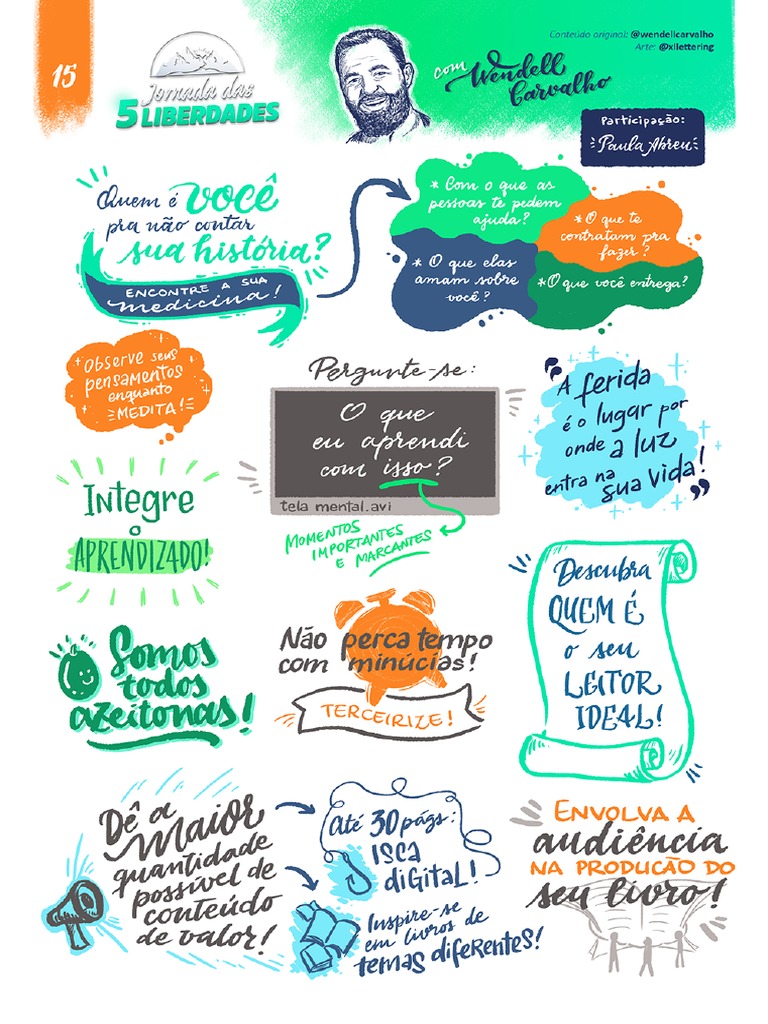 15
Jornada das
5 LIBERDADES
com Wendell
Carvalho
Conteúdo original: @wendellcarvalho
Arte: @xilettering
Participação:
Paula Abreu
Quem é você
pra não contar
sua história?
ENCONTRE A SUA
medicina!
* Com o que as
pessoas te pedem
ajuda?
* O que te
contratam pra
fazer?
* O que elas
amam sobre
você?
* O que você entrega?
Observe seus
pensamentos
enquanto
MEDITA!
Pergunte-se:
O que
eu aprendi
com isso?
tela mental.avi
MOMENTOS
IMPORTANTES
E MARCANTES
"A ferida
é o lugar por
onde a luz
entra na
sua vida!"
Integre
o
APRENDIZADO!
Não perca tempo
com minúcias!
TERCEIRIZE!
Descubra
QUEM É
o seu
LEITOR
IDEAL!
Somos
todos
azeitonas!
Dê a
MAIOR
quantidade
possível de
conteúdo
de valor!
Até 30 págs:
ISCA
DIGITAL!
Inspire-se
em livros de
temas diferentes!
ENVOLVA A
audiência
NA PRODUÇÃO DO
seu livro!